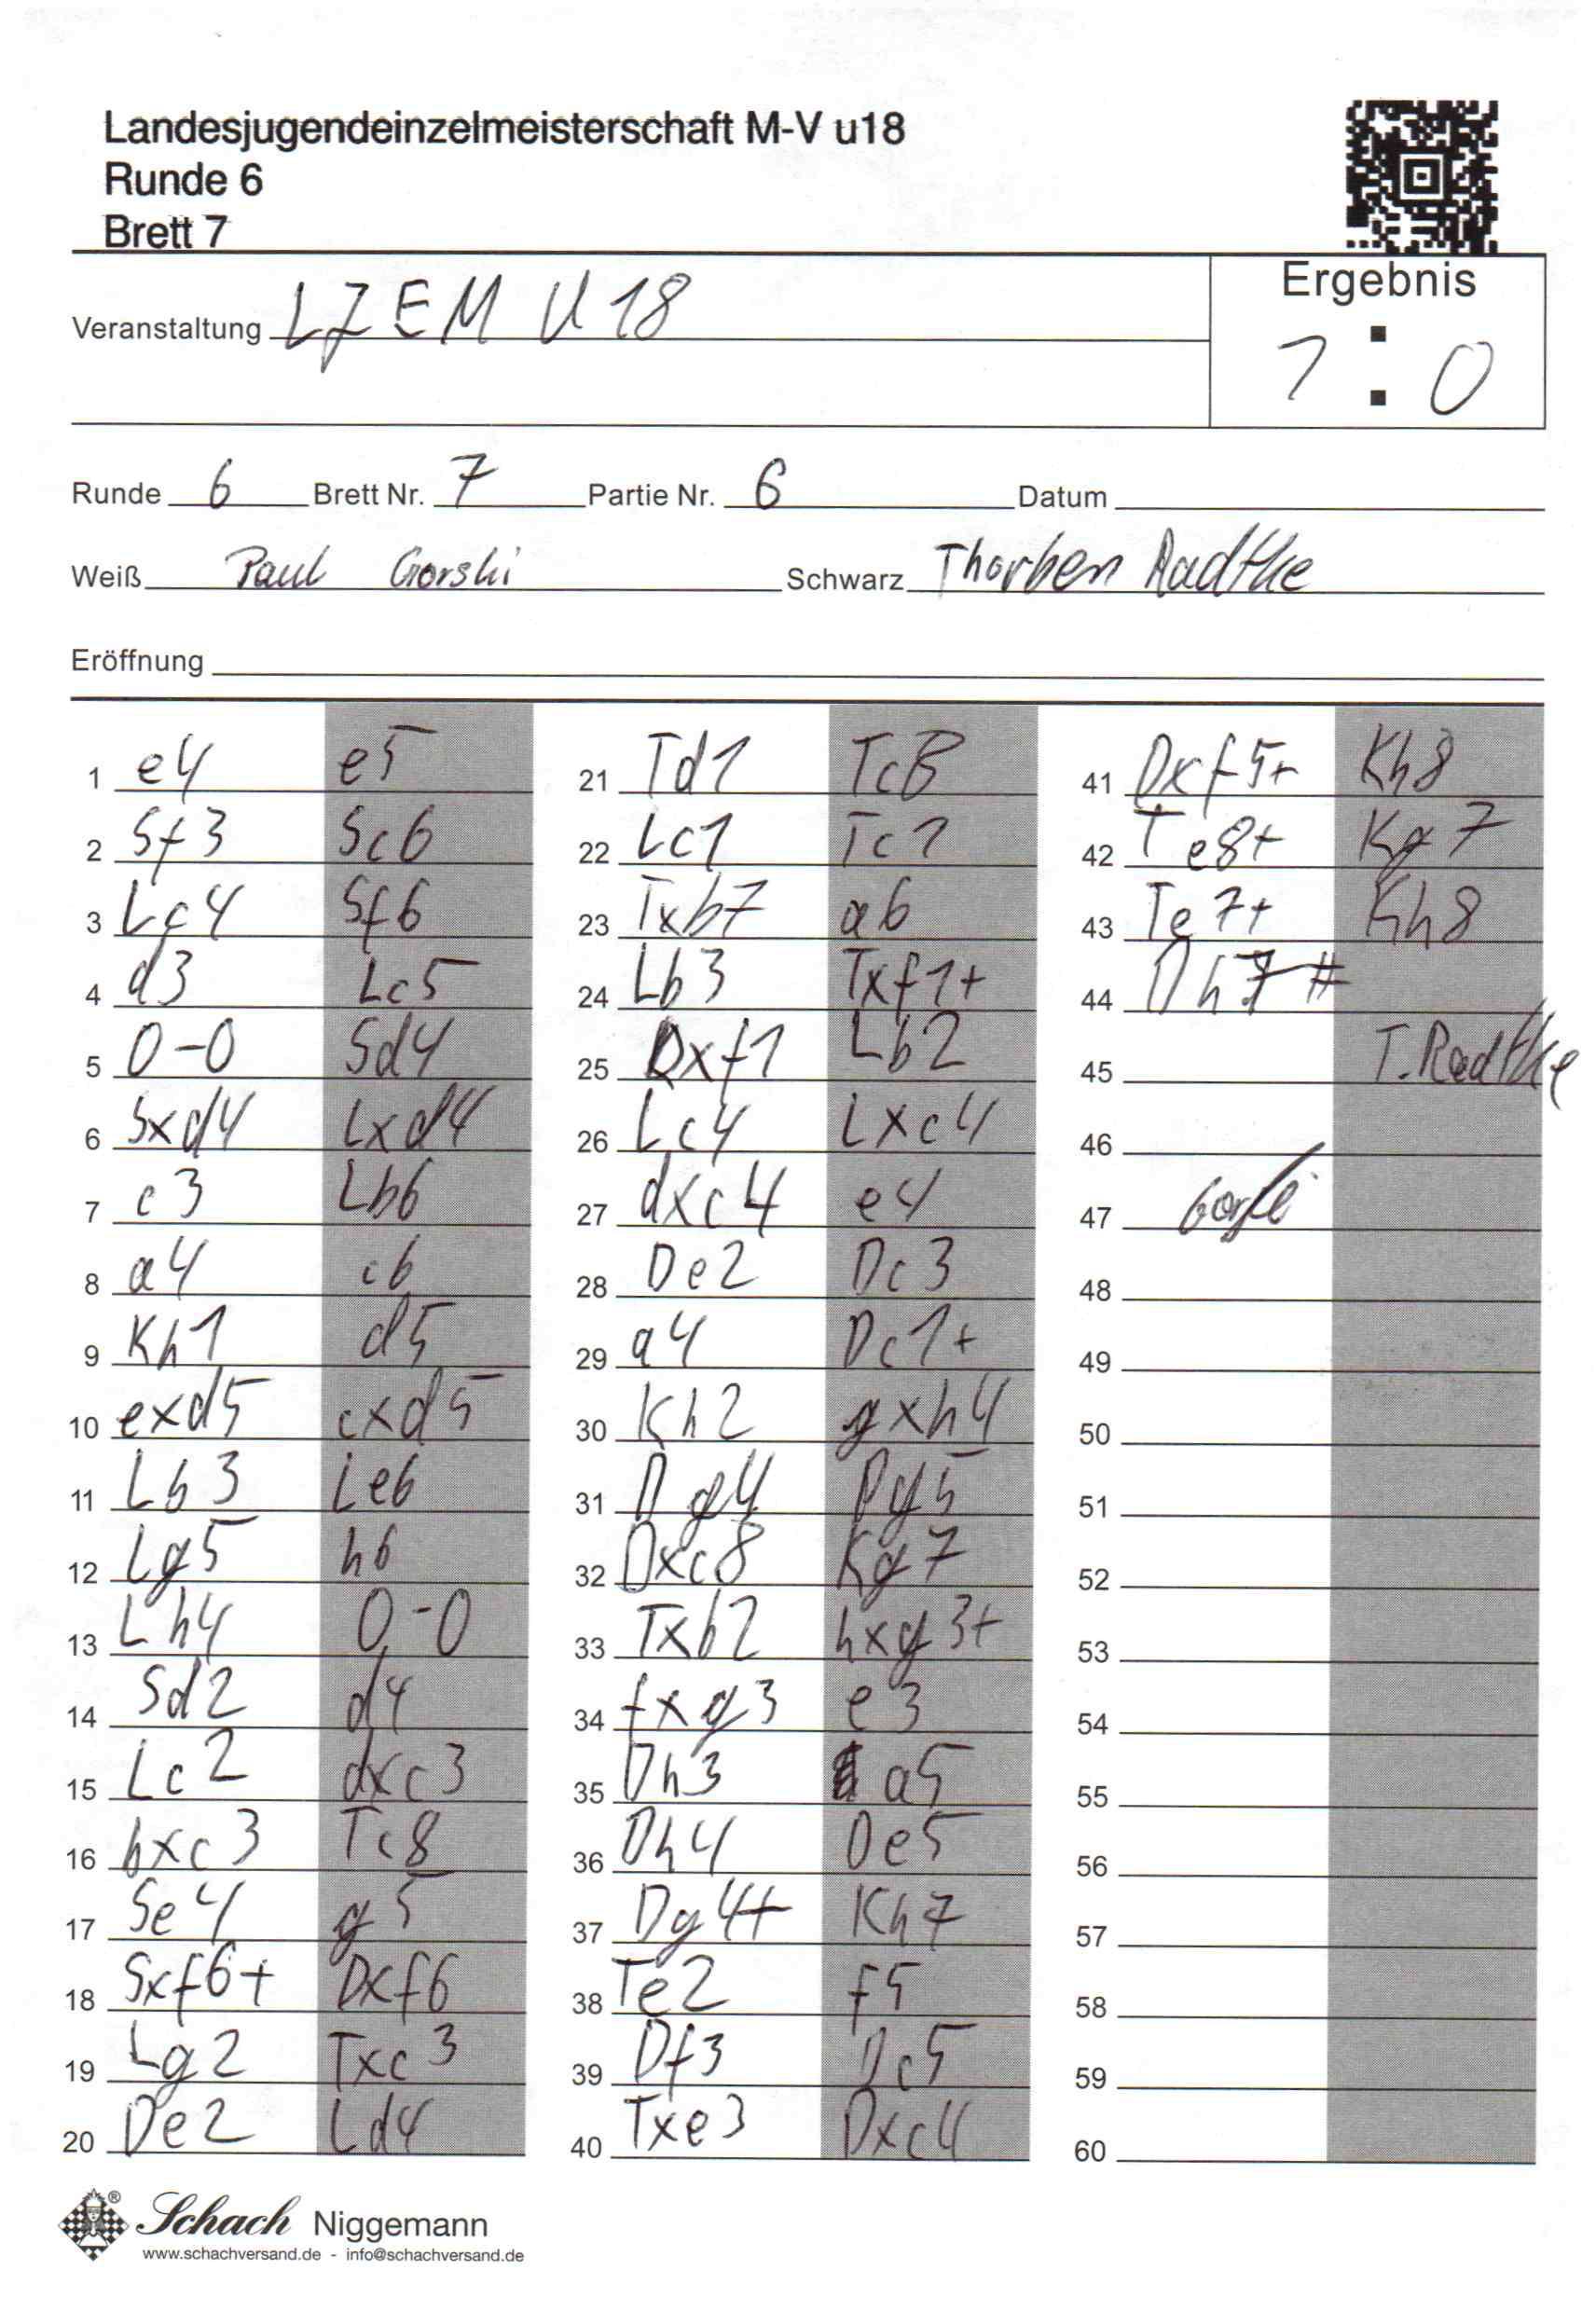 Landesjugendeinzelmeisterschaft M-V u18
Runde 6
Brett 7
Ergebnis
Veranstaltung LJEM U18
1 : 0
Runde 6 Brett Nr. 7 Partie Nr. 6 Datum
Weiß Paul Gorski Schwarz Thorben Radtke
Eröffnung
1 e4 e5
2 Sf3 Sc6
3 Lc4 Sf6
4 d3 Lc5
5 0-0 Sd4
6 Sxd4 Lxd4
7 c3 Lb6
8 a4 c6
9 Kh1 d5
10 exd5 cxd5
11 Lb3 Le6
12 Lg5 h6
13 Lh4 0-0
14 Sd2 d4
15 Lc2 dxc3
16 bxc3 Tc8
17 Se4 g5
18 Sxf6+ Dxf6
19 Lg2 Txc3
20 De2 Ld4
21 Td1 Tc8
22 Lc1 Tc1
23 Txb7 a6
24 Lb3 Txf1+
25 Dxf1 Lb2
26 Lc4 Lxc4
27 dxc4 e4
28 De2 Dc3
29 a4 Dc1+
30 Kh2 gxh4
31 Dg4 Dg5
32 Dxc8 Kg7
33 Txb2 hxg3+
34 fxg3 e3
35 Dh3 a5
36 Dh4 De5
37 Dg4+ Kh7
38 Te2 f5
39 Df3 Dc5
40 Txe3 Dxc4
41 Dxf5+ Kh8
42 Te8+ Kg7
43 Te7+ Kh8
44 Dh7#
45 T. Radtke
46
47 Gorski
48
49
50
51
52
53
54
55
56
57
58
59
60
Schach Niggemann
www.schachversand.de - info@schachversand.de